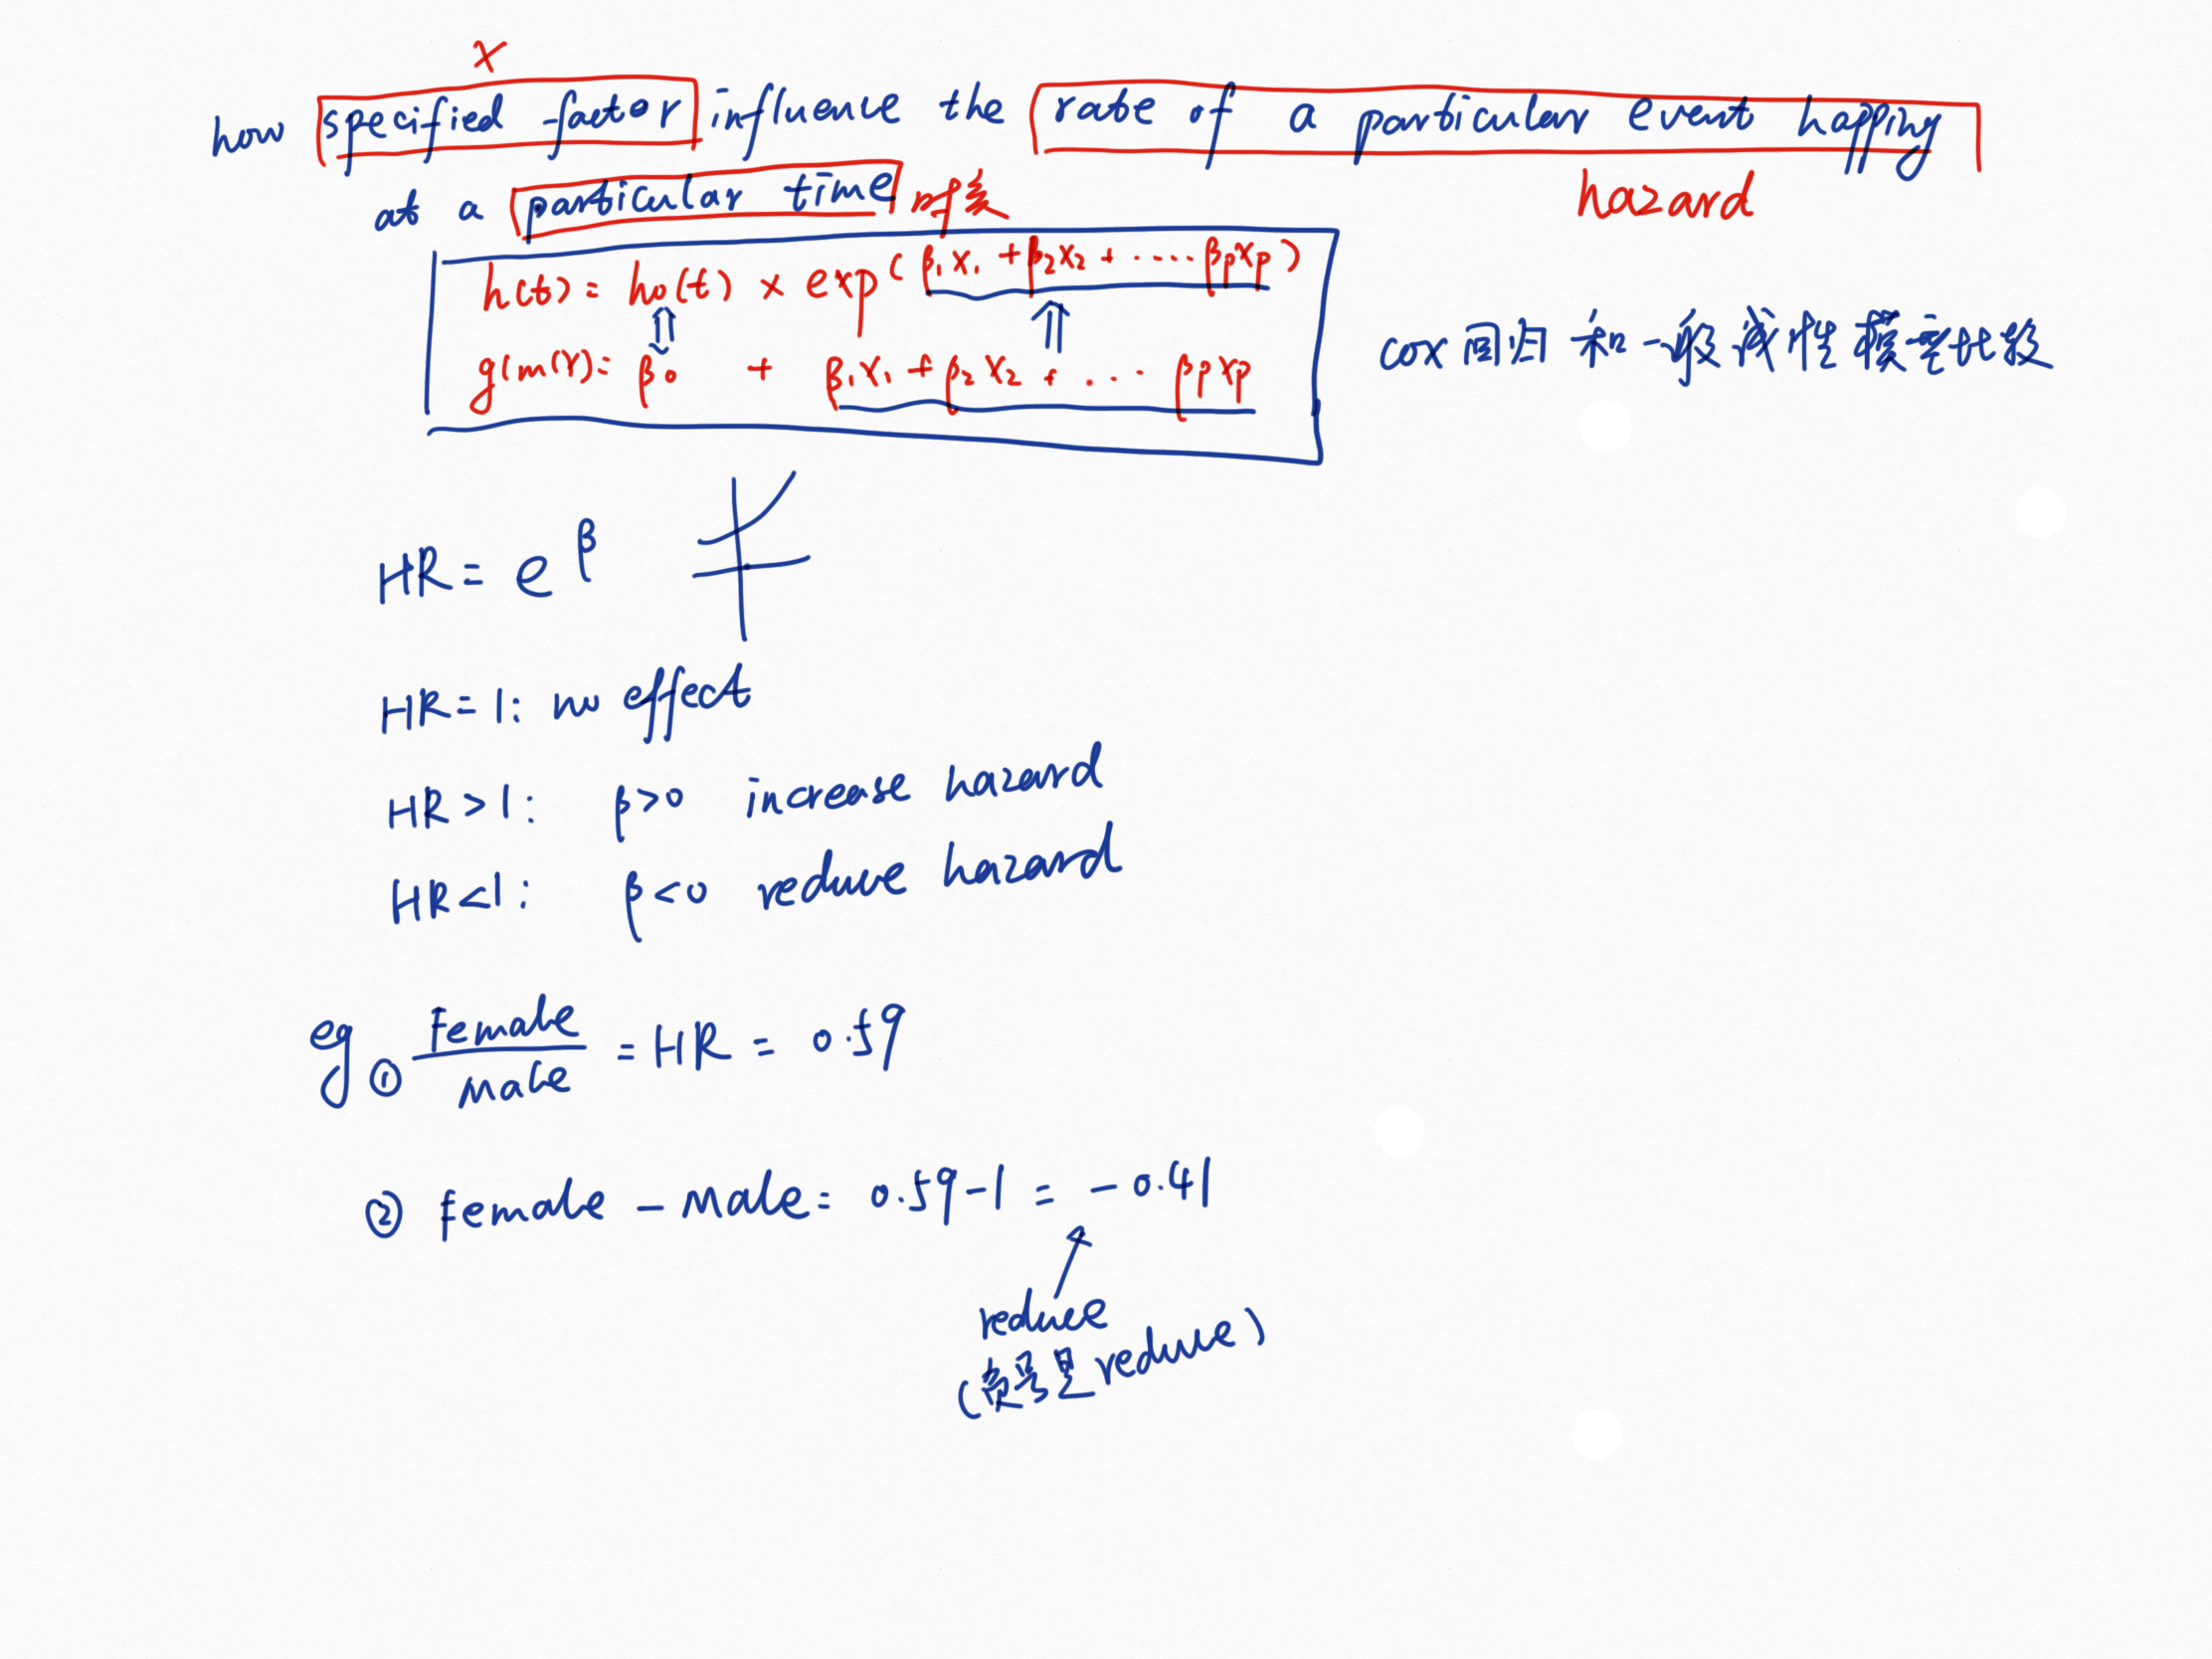 X
how specified factor influence the rate of a particular event happing
hazard
at a particular time 时矣
h(t) = h₀(t) × exp(β₁X₁ + β₂X₂ + ····· βpXp)
g(m(Y) = β₀ + β₁X₁ + β₂X₂ + ... βpXp
cox回归和一般线性模型比较
HR = e^β
HR = 1: no effect
HR > 1: β>0 increase hazard
HR < 1: β<0 reduce hazard
eg ① Female/male = HR = 0.59
② Female - Male = 0.59-1 = -0.41
reduce
(负号是reduce)